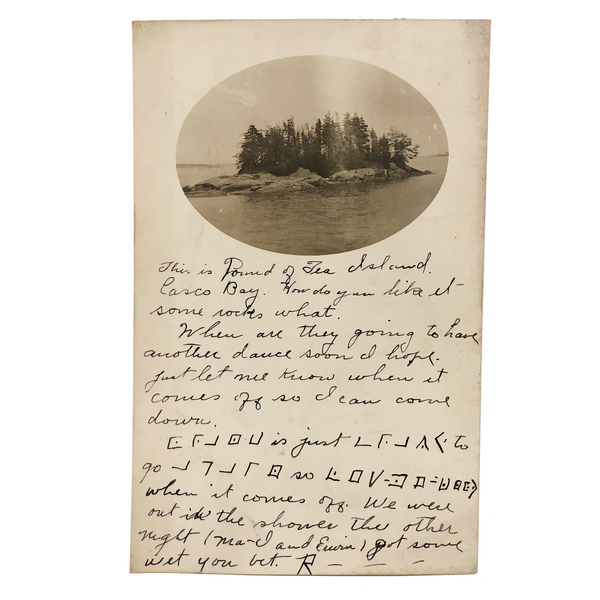 This is Pound of Tea Island.
Casco Bay. How do you like it
some rocks what.
When are they going to have
another dance soon I hope.
just let me know when it
comes off so I can come
down.
is just to
go so
when it comes off. We were
out in the shower the other
night (Ma-I and Erwin) got some
wet you bet.